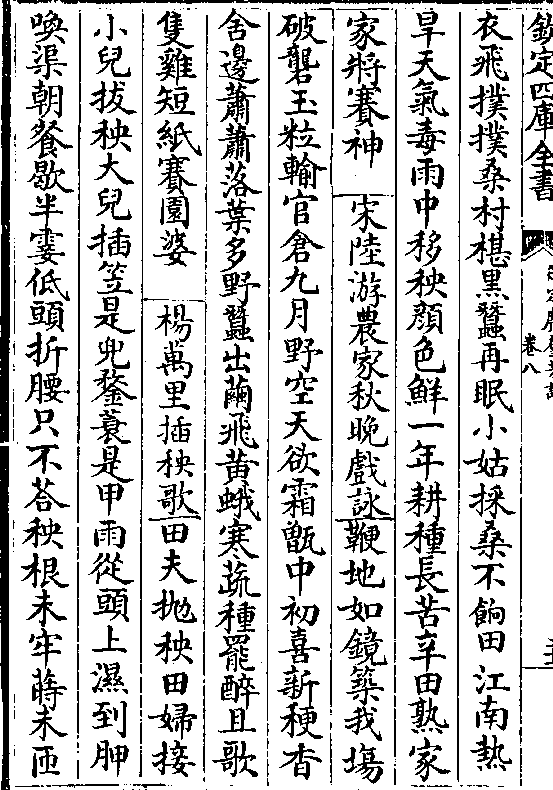 欽定四庫全書
卷八
衣飛撲撲桑村椹黒蠶再眠小姑採桑不餉田江南熱
旱天氣毒雨中移秧顔色鮮一年耕種長苦辛田熟家
家將賽神 宋陸游農家秋晩戲詠鞭地如鏡築我塲
破礱玉粒輸官倉九月野空天欲霜甑中初喜新稉香
舍邊蕭蕭落葉多野蠶出繭飛黄蛾寒蔬種罷醉且歌
隻雞短紙賽園婆 楊萬里插秧歌田夫抛秧田婦接
小兒拔秧大兒插笠是兜鍪蓑是甲雨從頭上濕到胛
喚渠朝餐歇半霎低頭折腰只不荅秧根未牢蒔未匝